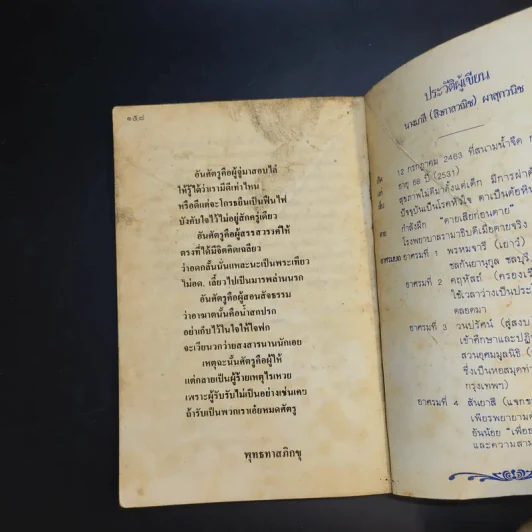 ๑๕๘
อันศัตรูคือผู้จู่มาสอบไล่
ให้รู้ได้ว่าเรามีดีเท่าไหน
หรือดีแต่จะโกรธยืนเป็นฟืนไฟ
บังคับใจไว้ไม่อยู่สักครู่เดียว
อันศัตรูคือผู้สรรสวรรค์ให้
ตรงที่ได้มีจิตคิดเฉลียว
ว่าอดกลั้นนั่นแหละนะเป็นพระเพียว
ไม่อด, เลี้ยวไปเป็นมารพล่านนรก
อันศัตรูคือผู้สอนสัจธรรม
ว่าอาฆาตนั้นคือน้ำสกปรก
อย่าเก็บไว้ในใจให้ใจฟก
จะเวียนวกว่ายสงสารนานนักเอย
เหตุฉะนั้นศัตรูคือผู้ให้
แต่กลายเป็นผู้ร้ายเหตุไรเหวย
เพราะผู้รับรับไม่เป็นอย่างเช่นเคย
ถ้ารับเป็นพวกเราเอ๋ยหมดศัตรู
พุทธทาสภิกขุ
ประวัติผู้เขียน
นางมาลี (สิงคาลวณิช) ผาสุกวณิช
เกิด 12 กรกฎาคม 2463 ที่สนามน้ำจืด
อายุ 68 ปี (2531)
สุขภาพไม่ดีมาตั้งแต่เด็ก มีการผ่าตัด
ปัจจุบันเป็นโรคหัวใจ ตาเป็นต้อหิน
กำลังฝึก "ตายเสียก่อนตาย"
โรงพยาบาลรามาธิบดีเมื่อตายจริง
อาศรมที่ 1 พรหมจารี (เยาว์)
ชลกันยานุกูล ชลบุรี,
อาศรมที่ 2 คฤหัสถ์ (ครองเรือน
ใช้เวลาว่างเป็นประ
ตลอดมา
อาศรมที่ 3 วนปรัศน์ (สู่สงบ
เข้าศึกษาและปฏิ
สวนอุศมมูลนิธิ
ซึ่งเป็นหอสมุด
กรุงเทพฯ)
อาศรมที่ 4 สันยาสี (แจกข
เพียรพยายาม
อันน้อย "เพื่อ
และความสาม